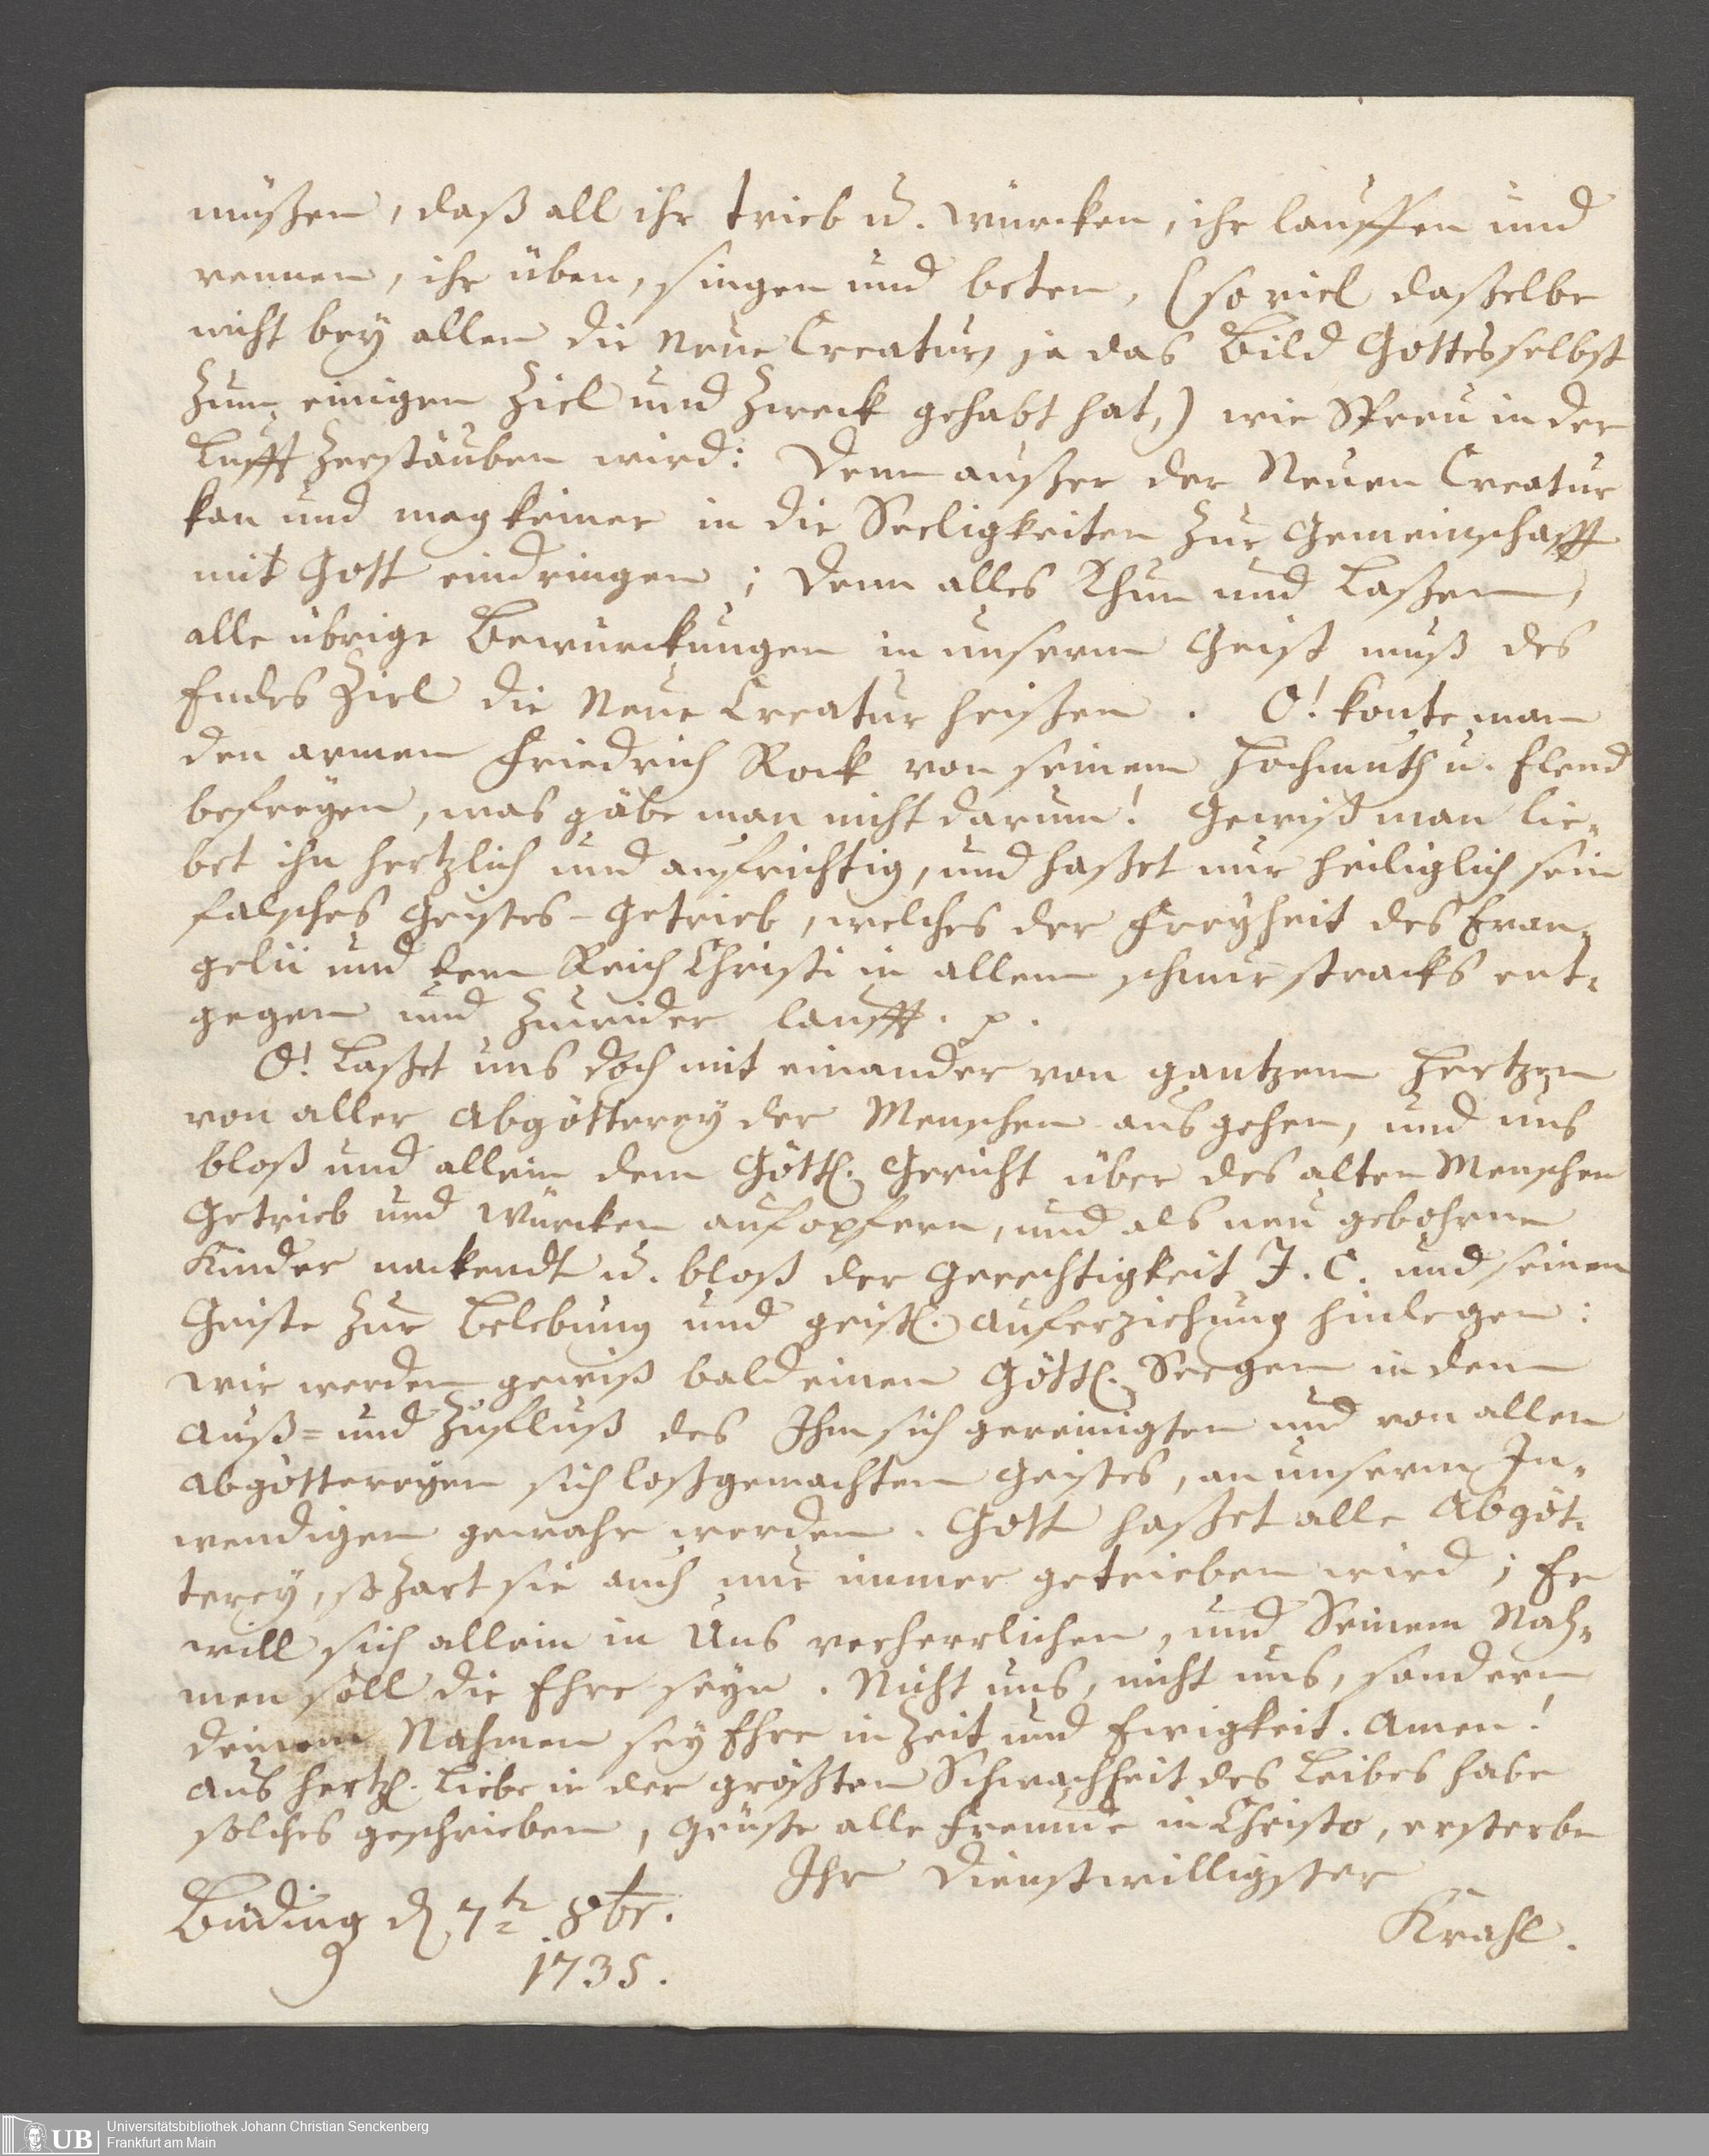 müßen, daß all ihr trieb u. würcken, ihr lauffen und
rennen, ihr üben, singen und beten, (so viel daßelbe
nicht bey allen die Neue Creatur, ja das Bild Gottes selbst
zum einigen Ziel und Zweck gehabt hat,) wie Spreu in der
Lufft zerstäuben wird: Denn außer der Neuen Creatur
kan und mag keiner in die Seeligkeiten zur Gemeinschafft
mit Gott eindringen; Denn alles Thun und Laßen,
alle übrige Bewürckungen in unserm Geist muß des
Endes Ziel die Neue Creatur heißen. O! konte man
den armen Friedrich Rock von seinem Hochmuth u. Elend
befreyen, was gäbe man nicht darum! Gewiß man lie-
bet ihn hertzlich und aufrichtig, und haßet nur heiliglich sein
falsches Geistes-Getrieb, welches der Freyheit des Evan-
gelii und dem Reich Christi in allem schnurstracks ent-
gegen und zuwider laufft. p.
O! Laßet uns doch mit einander von gantzem Hertzen
von aller Abgötterey der Menschen ausgehen, und uns
bloß und allein dem Göttl. Gericht über des alten Menschen
Getrieb und Würcken aufopfern, und als neu gebohrne
Kinder nackendt u. bloß der Gerechtigkeit J. C. und seinem
Geiste zur Belebung und geistl. Auferziehung hinlegen:
wir werden gewiß bald einen Göttl. Seegen in dem
Auß- und Zufluß des Ihm sich gereinigten und von allen
Abgöttereyen sich loßgemachten Geistes, an unserm In-
wendigen gewahr werden. Gott haßet alle Abgöt-
terey, so zart sie auch nur immer getrieben wird; Er
will sich allein in Uns verherrlichen, und Seinem Nah-
men soll die Ehre seyn. Nicht uns, nicht uns, sondern
deinem Nahmen sey Ehre in Zeit und Ewigkeit. Amen!
Aus hertzl. Liebe in der größten Schwachheit des Leibes habe
solches geschrieben, Grüße alle Freunde in Christo, ersterbe
Ihr Dienstwilligster
Büding d 7t 8br.
Krahl.
1735.
UB Universitätsbibliothek Johann Christian Senckenberg
Frankfurt am Main